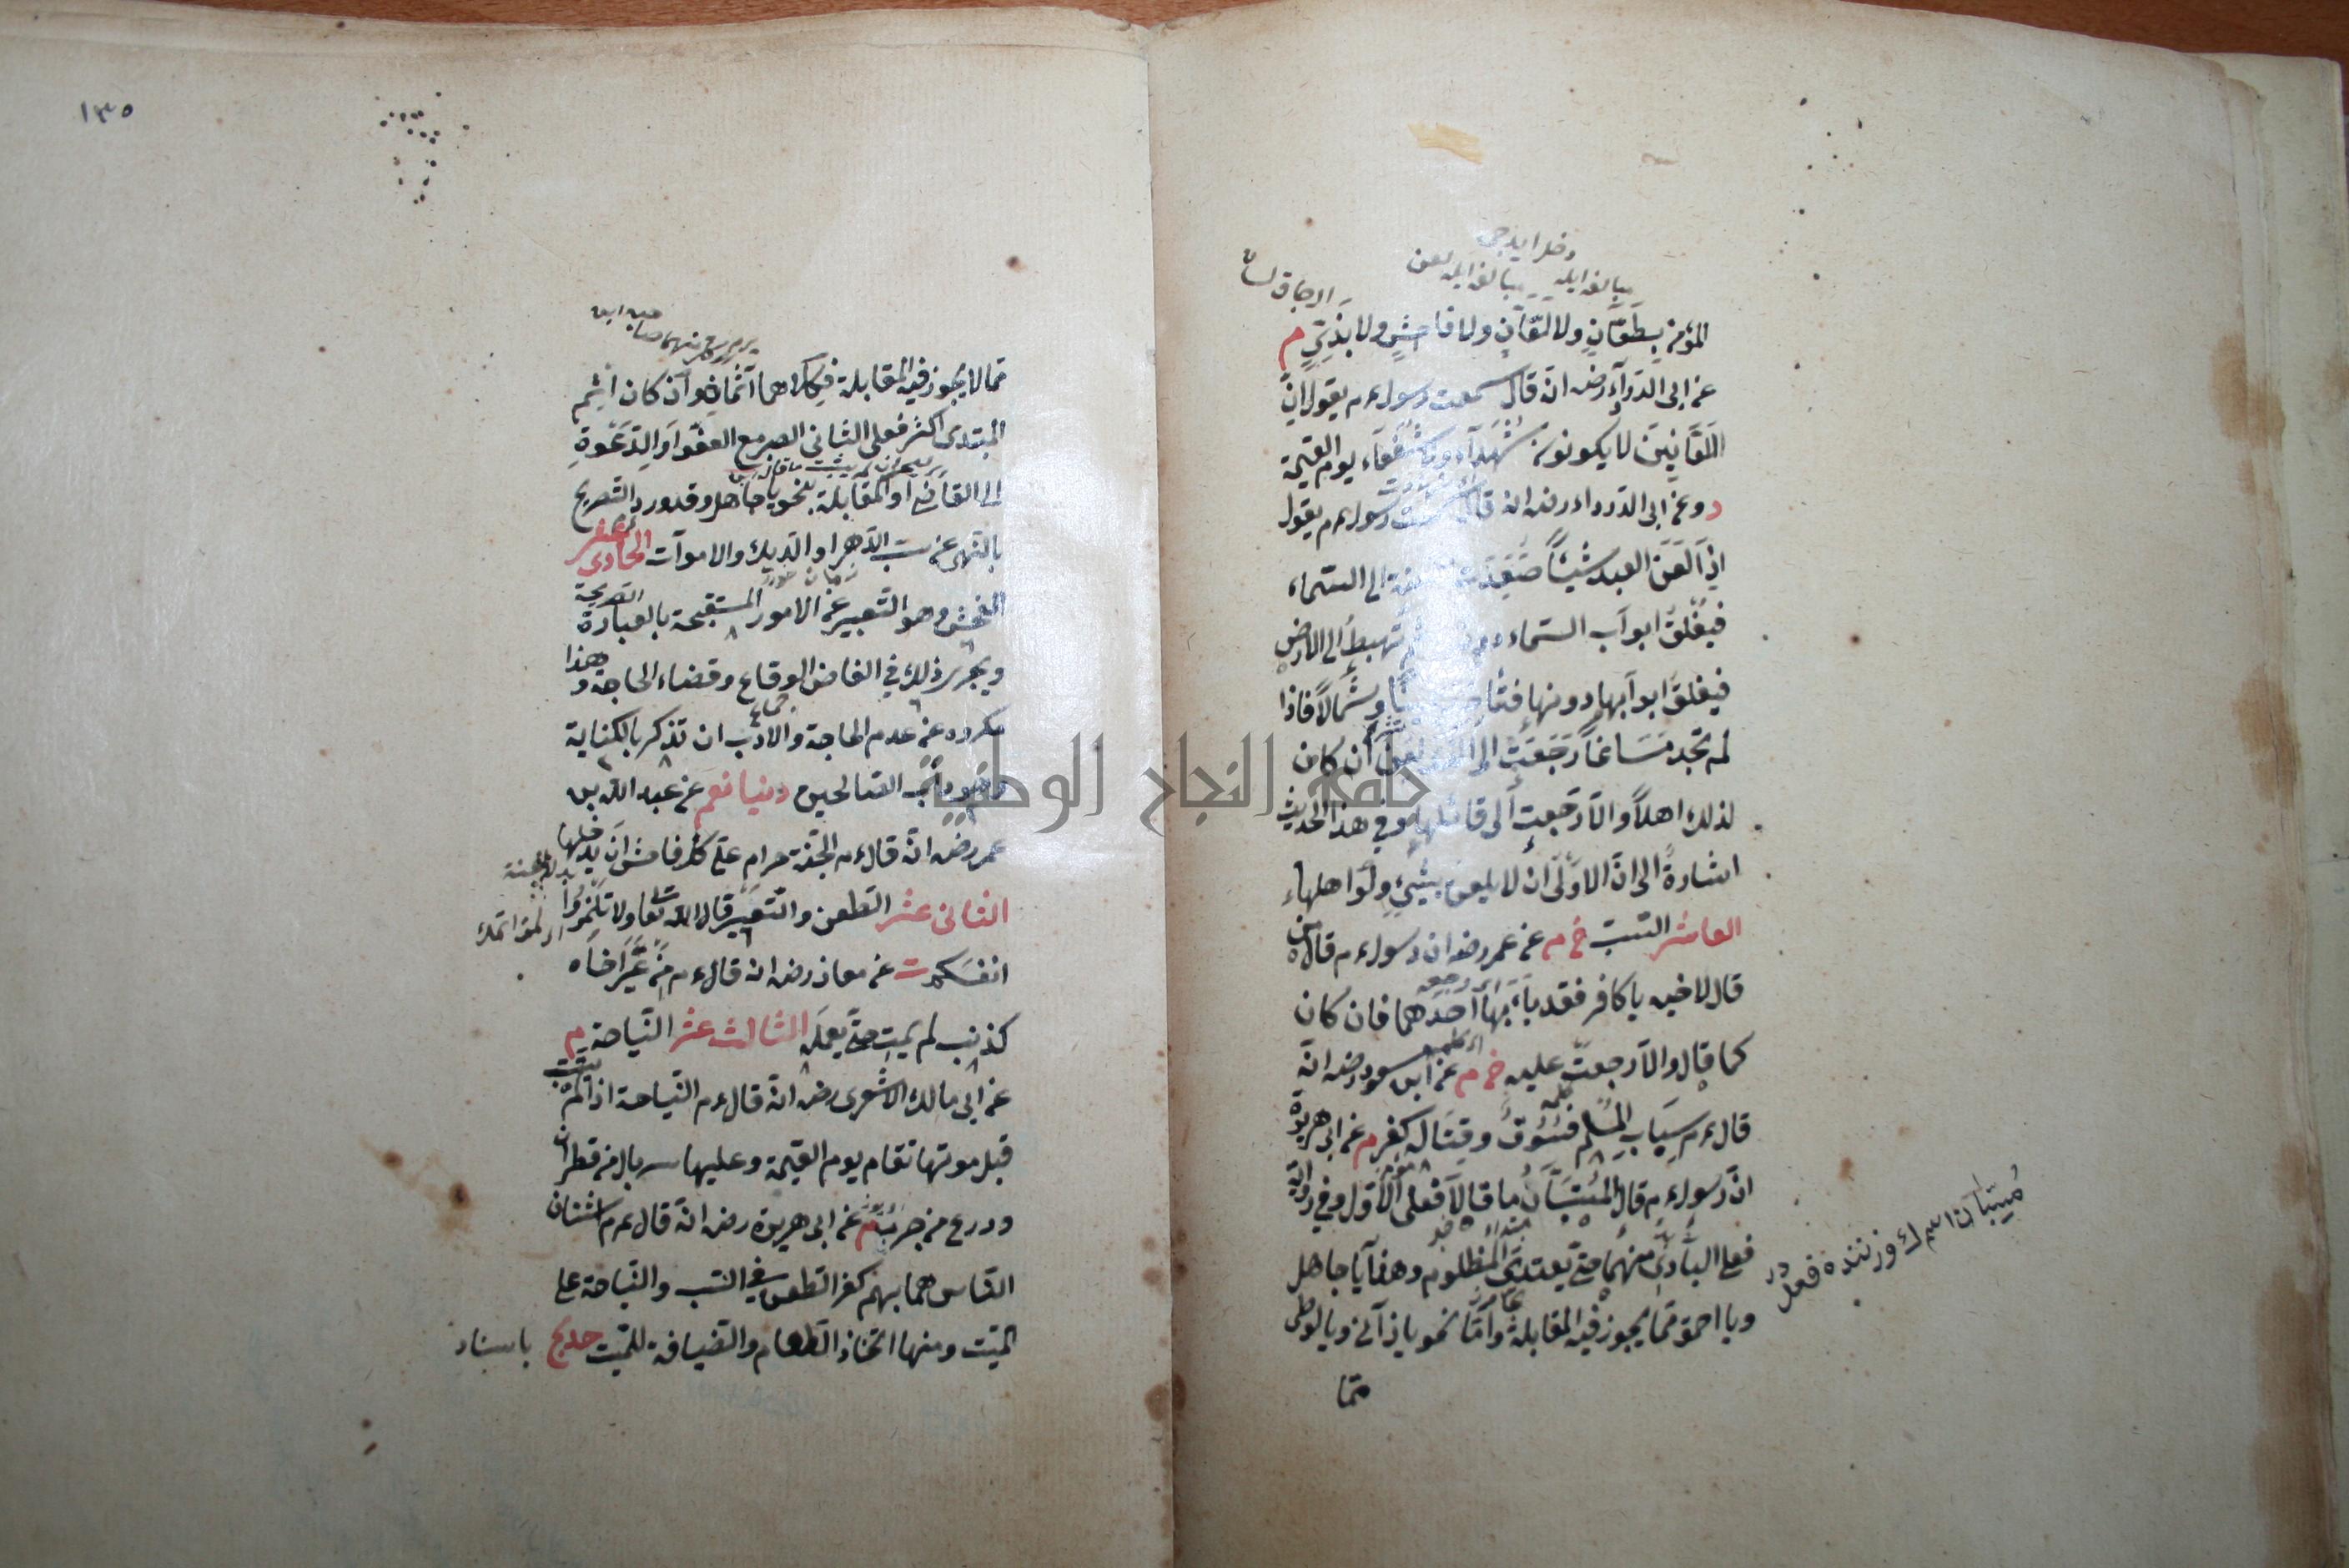 المؤمن بطعّان ولا لعّان ولا فاحش ولا بذيّ م
عن ابى الدرداء رض انه قال سمعت رسول عم يقول انّ
اللعّانين لا يكونون شهداء ولا شفعاء يوم القيمة
د وعن ابى الدرداء رض انه قال سمعت رسول عم يقول
اذا لعن العبد شيئا صعدت اللعنة الى السماء
فيغلق ابواب السماء دونها ثم تهبط الى الارض
فيغلق ابوابها دونها فتأخذ يمينا وشمالا فاذا
لم تجد مساغا رجعت الى الذى لعن ان كان
لذلك اهلا والّا رجعت الى قائلها وفى هذا الحديث
اشارة الى انّ الاولى ان لا يلعن بشيء ولو اهلها
العاشر السبّ خ م عن عمر رض ان رسول عم قال من
قال لاخيه يا كافر فقد باء بها احدهما فان كان
كما قال والّا رجعت عليه خ م عن ابن مسعود رض انه
قال عم سباب المسلم فسوق وقتاله كفر م عن ابى هريرة
انّ رسول عم قال المستبّان ما قالا فعلى الاوّل وفى رواية
فعلى البادى منهما حتى يعتدى المظلوم وهذا يا جاهل
ويا احمق ممّا يجوز فيه المقابلة وامّا نحو يا زانى ويا لوطى
ممّا
١٣٥
ممّا لا يجوز فيه المقابلة فكلاهما آثمان وان كان اثم
المبتدى اكثر فعلى الثانى الصبر مع العفو او الدعوة
الى القاضى او المقابلة بنحو يا جاهل وقد ورد التصريح
بالنهى عن سبّ الدهر او الديك والاموات الحادى عشر
الفحش وهو التعبير عن الامور المستقبحة بالعبارة الصريحة
ويجرى ذلك فى الفاظ الوقاع وقضاء الحاجة وهذا
مكروه عن عدم الحاجة والادب ان تذكر بالكناية
وهو دأب الصالحين دنيا نعم عن عبد الله بن
عمر رض انه قال عم الجنة حرام على كل فاحش ان يدخلها
الثانى عشر الطعن والتعيير قال الله تعا ولا تلمزوا
انفسكم ت عن معاذ رض انه قال عم من عيّر اخاه
كذنب لم يمت حتى يعمله الثالث عشر النياحة م
عن ابى مالك الاشعرى رض انه قال عم النياحة اذا لم تتب
قبل موتها تقام يوم القيمة وعليها سربال من قطران
ودرع من جرب م عن ابى هريرة رض انه قال عم اثنتان
الناس هما بهم كفر الطعن فى النسب والنياحة على
الميّت ومنها اتخاذ الطعام والضيافة للميّت حد مج باسناد
جامعة النجاح الوطنية